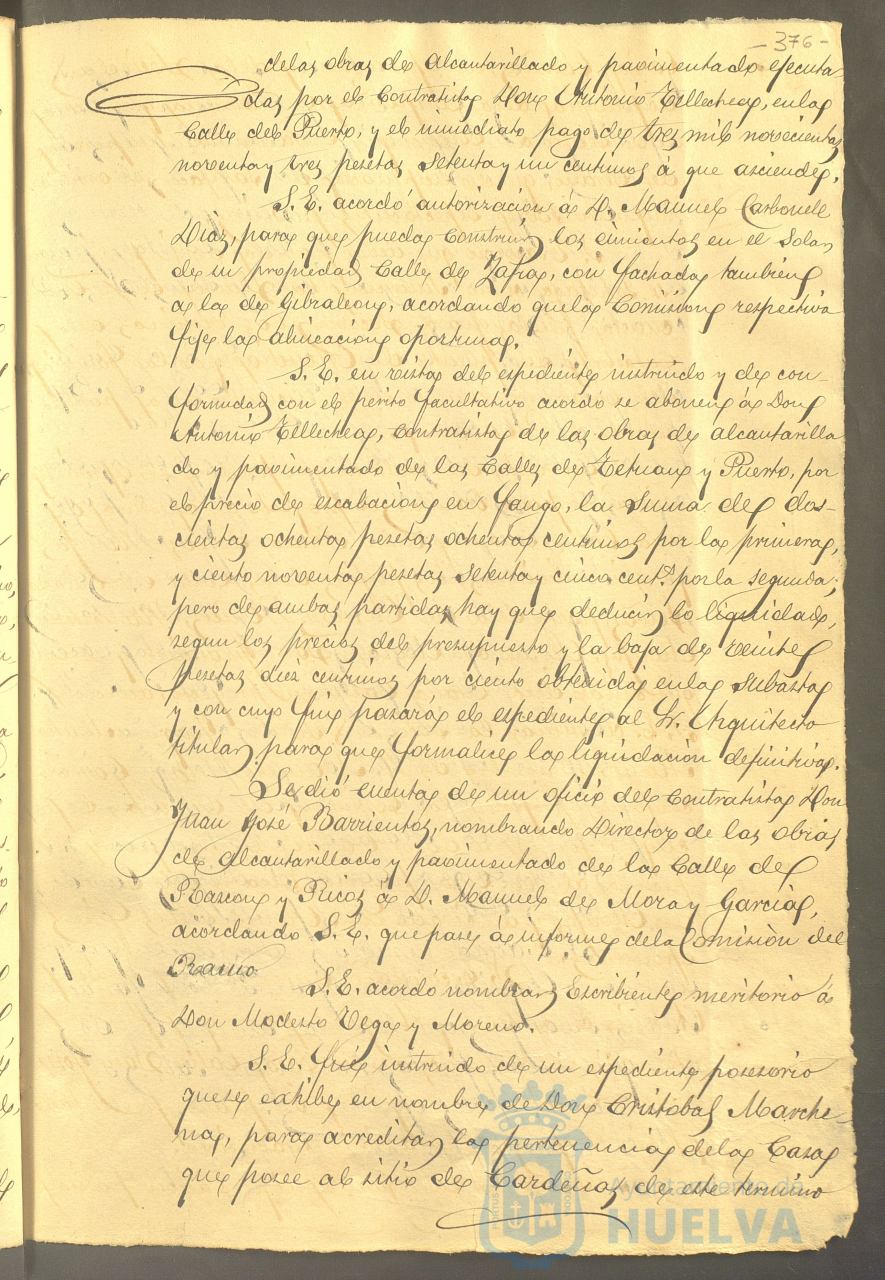 - 376 -
delas obras de alcantarillado y pavimentado ejecuta-
das por el Contratista Don Antonio Tellechea, enla
Calle del Puerto, y el inmediato pago de tres mil novecientas
noventa y tres pesetas setenta y un centimos á que asciende.
S. E. acordó autorizacion á D. Manuel Carbonell
Diaz, para que pueda construir los cimientos en el solar
de su propiedad Calle de Zafra, con fachada tambien
á la de Gibraleon, acordando que la Comision respectiva
fije la alineacion oportuna.
S. E. en vista del espediente instruido y de con-
formidad con el perito facultativo acordó se abonen á Don
Antonio Tellechea, Contratista de las obras de alcantarilla
do y pavimentado de las Calles de Tetuan y Puerto, por
el precio de escabacion en fango, la suma de dos-
cientas ochenta pesetas ochenta centimos por la primera,
y ciento noventa pesetas setenta y cinco cent.s por la segunda;
pero de ambas partidas hay que deducir lo liquidado,
segun los precios del presupuesto y la baja de veinte
pesetas diez centimos por ciento obtenida enla subasta
y con cuyo fin pasará el espediente al Sr. Arquitecto
titular para que formalice la liquidacion definitiva.
Se dió cuenta de un oficio del Contratista Don
Juan José Barrientos, nombrando Director de las obras
de alcantarillado y pavimentado de la Calle del
Rascon y Ricos á D. Manuel de Mora y Garcia,
acordando S. E. que pase á informe dela Comisiòn del
Ramo.
S. E. acordó nombrar Escribiente meritorio á
Don Modesto Vega y Moreno.
S. E. fué instruido de un espediente posesorio
que se exhibe en nombre de Don Cristobal Marche-
na, para acreditar la pertenencia dela Casa
que posee al sitio de Cardeñas de este termino
Ayuntamiento de
HUELVA